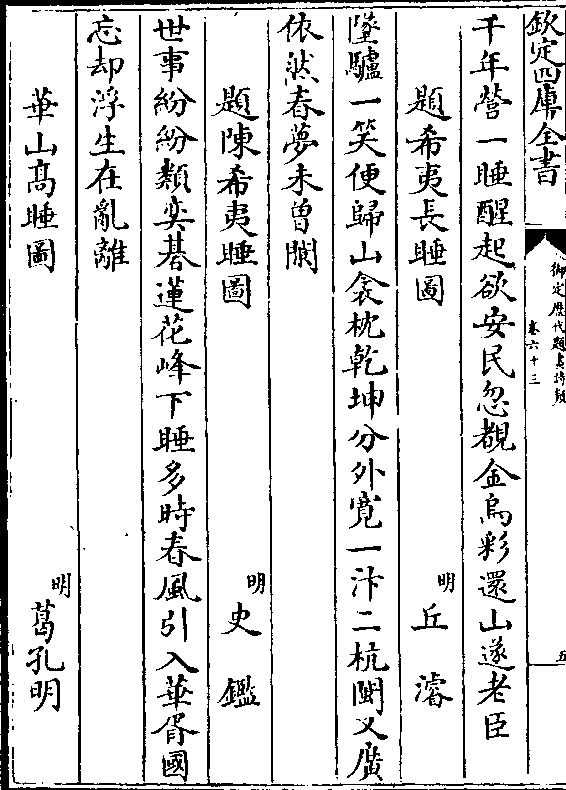 欽定四庫全書
御定歷代題畫詩類
卷六十三
五
千年營一睡醒起欲安民忽覩金烏彩還山遂老臣
題希夷長睡圖
明 丘濬
墜驢一笑便歸山衾枕乾坤分外寛一汴二杭閩又廣
依然春夢未曽闌
題陳希夷睡圖
明 史鑑
世事紛紛類奕碁蓮花峰下睡多時春風引入華胥國
忘却浮生在亂離
華山髙睡圖
明 葛孔明